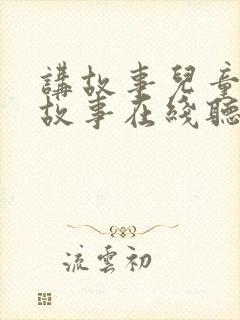 講故事兒童
故事在綫聽
流雲初